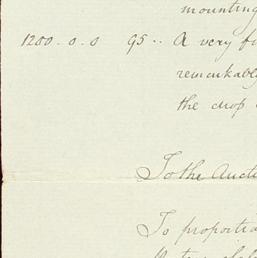 mounting
1200.0.0 95.. A very fi
remarkably
the drop
To the Aucti
To proportio